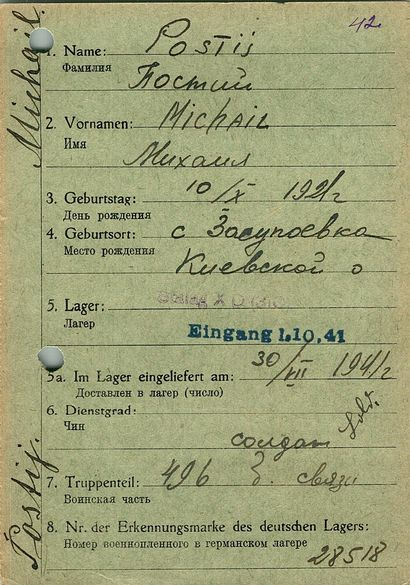 42
1. Name: Postij
Фамилия Постий
2. Vornamen: Michail
Имя Михаил
3. Geburtstag: 10/X 1921 г
День рождения
4. Geburtsort: с Засупоевка
Место рождения Киевской о
5. Lager: Stalag X D (310)
Лагер
Eingang 1.10.41
5a. Im Lager eingeliefert am: 30/VII 1941 г
Доставлен в лагер (число)
6. Dienstgrad:
Чин солдат Sold.
7. Truppenteil: 496 б. связи
Воинская часть
8. Nr. der Erkennungsmarke des deutschen Lagers:
Номер военнопленного в германском лагере
28518
Postij. Michail.